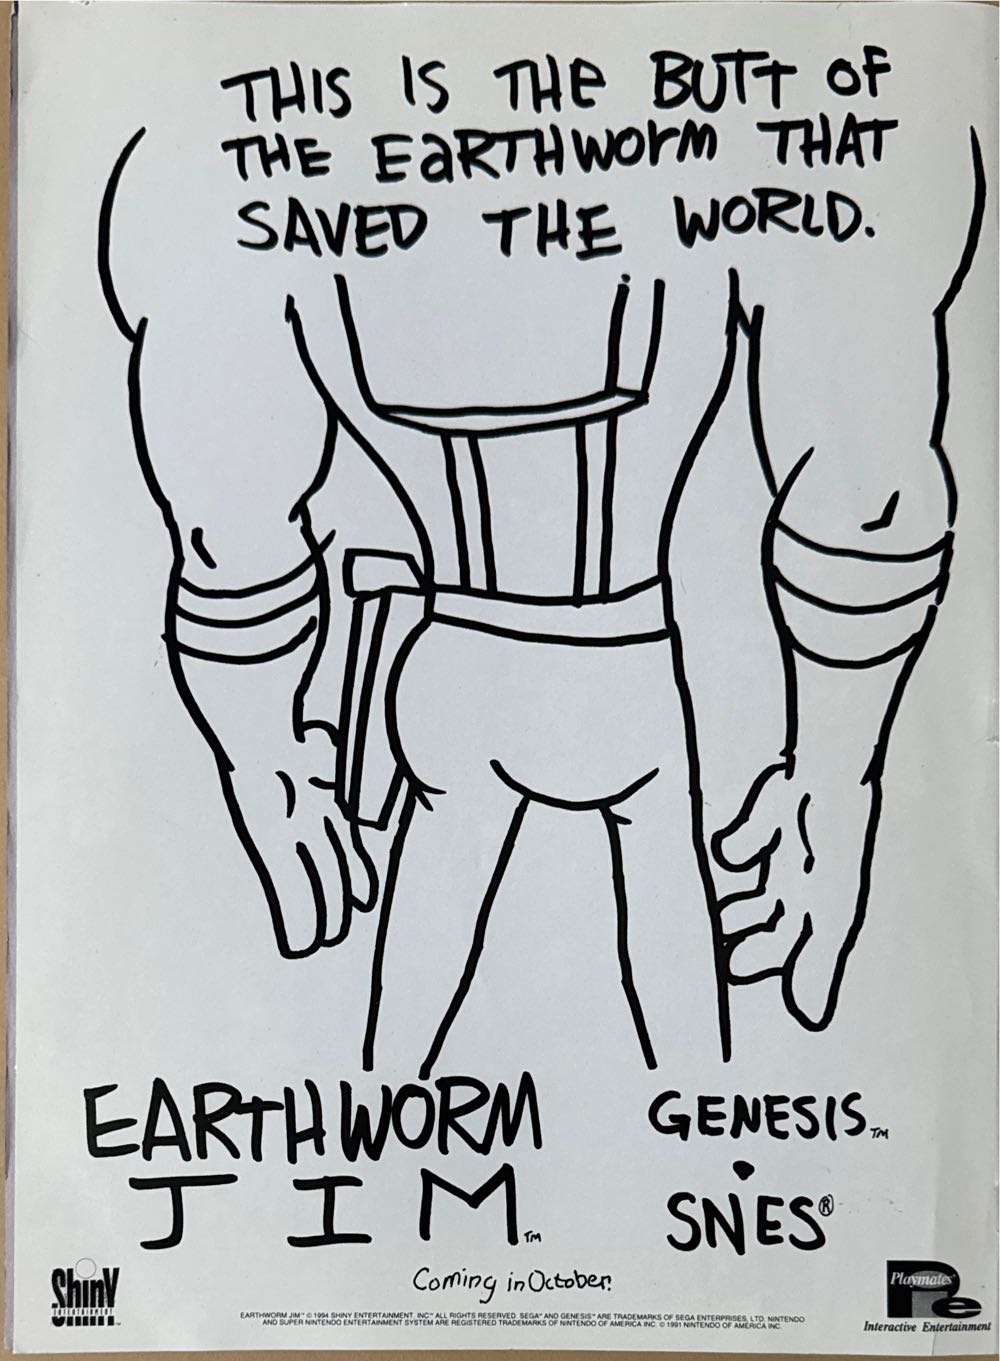 THIS IS THE BUTT OF
THE EARTHWORM THAT
SAVED THE WORLD.
EARTHWORM
JIM™
GENESIS™
•
SNES®
Coming in October.
Shiny
ENTERTAINMENT™
EARTHWORM JIM™ © 1994 SHINY ENTERTAINMENT, INC™ ALL RIGHTS RESERVED. SEGA™ AND GENESIS™ ARE TRADEMARKS OF SEGA ENTERPRISES, LTD. NINTENDO
AND SUPER NINTENDO ENTERTAINMENT SYSTEM ARE REGISTERED TRADEMARKS OF NINTENDO OF AMERICA INC. © 1991 NINTENDO OF AMERICA INC.
Playmates®
Pie
Interactive Entertainment